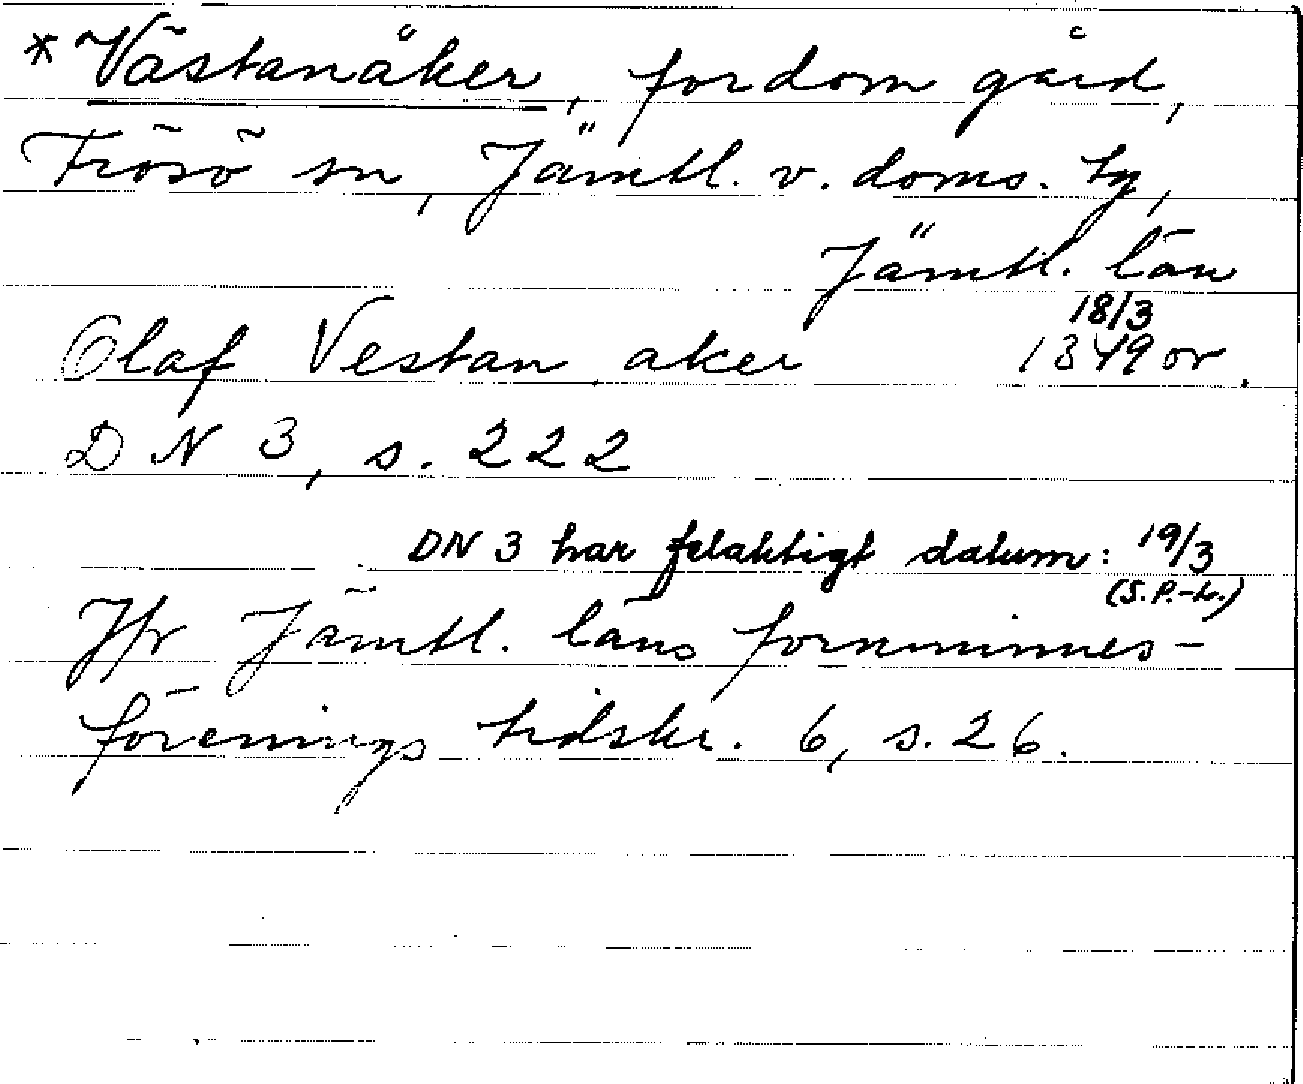 * Västanåker, fordom gård,
Frösö sn, Jämtl. v. doms. tg,
Jämtl. län
18/3
Olaf Vestan aker 1349 or.
DN 3, s. 222
DN 3 har felaktigt datum: 19/3
(S.P.-L.)
Jfr Jämtl. läns fornminnes-
förenings tidskr. 6, s. 26.